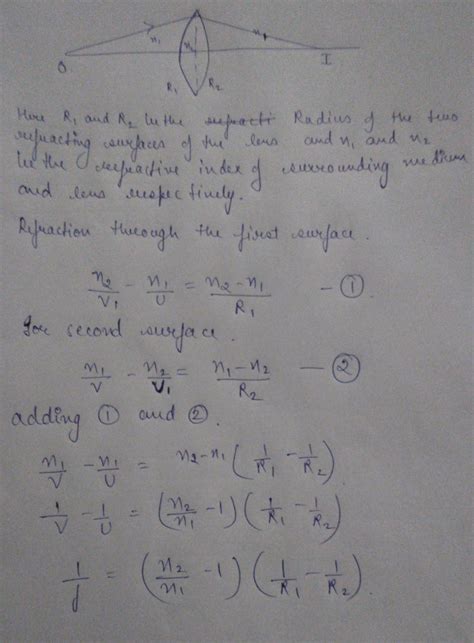 n₁ n₂ n₁
O I
R₁ R₂
Here R₁ and R₂ be the Radius of the two
refracting surfaces of the lens and n₁ and n₂
be the refractive index of surrounding medium
and lens respectively.
Refraction through the first surface.
n₂/V₁ - n₁/U = n₂-n₁/R₁ - ①.
for second surface.
n₁/V - n₂/V₁ = n₁-n₂/R₂ — ②
adding ① and ②.
n₁/V - n₁/U = n₂-n₁ (1/R₁ - 1/R₂).
1/V - 1/U = (n₂/n₁ - 1) (1/R₁ - 1/R₂)
1/f = (n₂/n₁ - 1) (1/R₁ - 1/R₂).